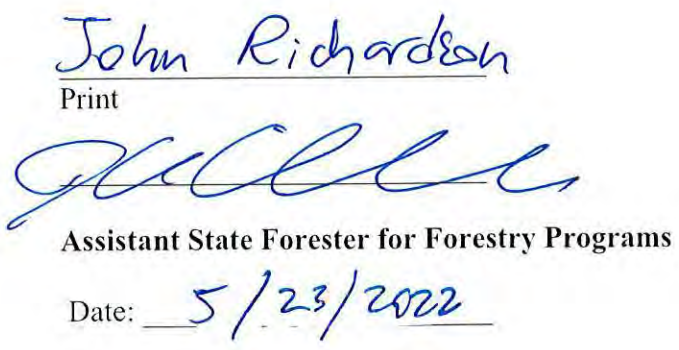 John Richardson
Print
Assistant State Forester for Forestry Programs
Date: 5/23/2022